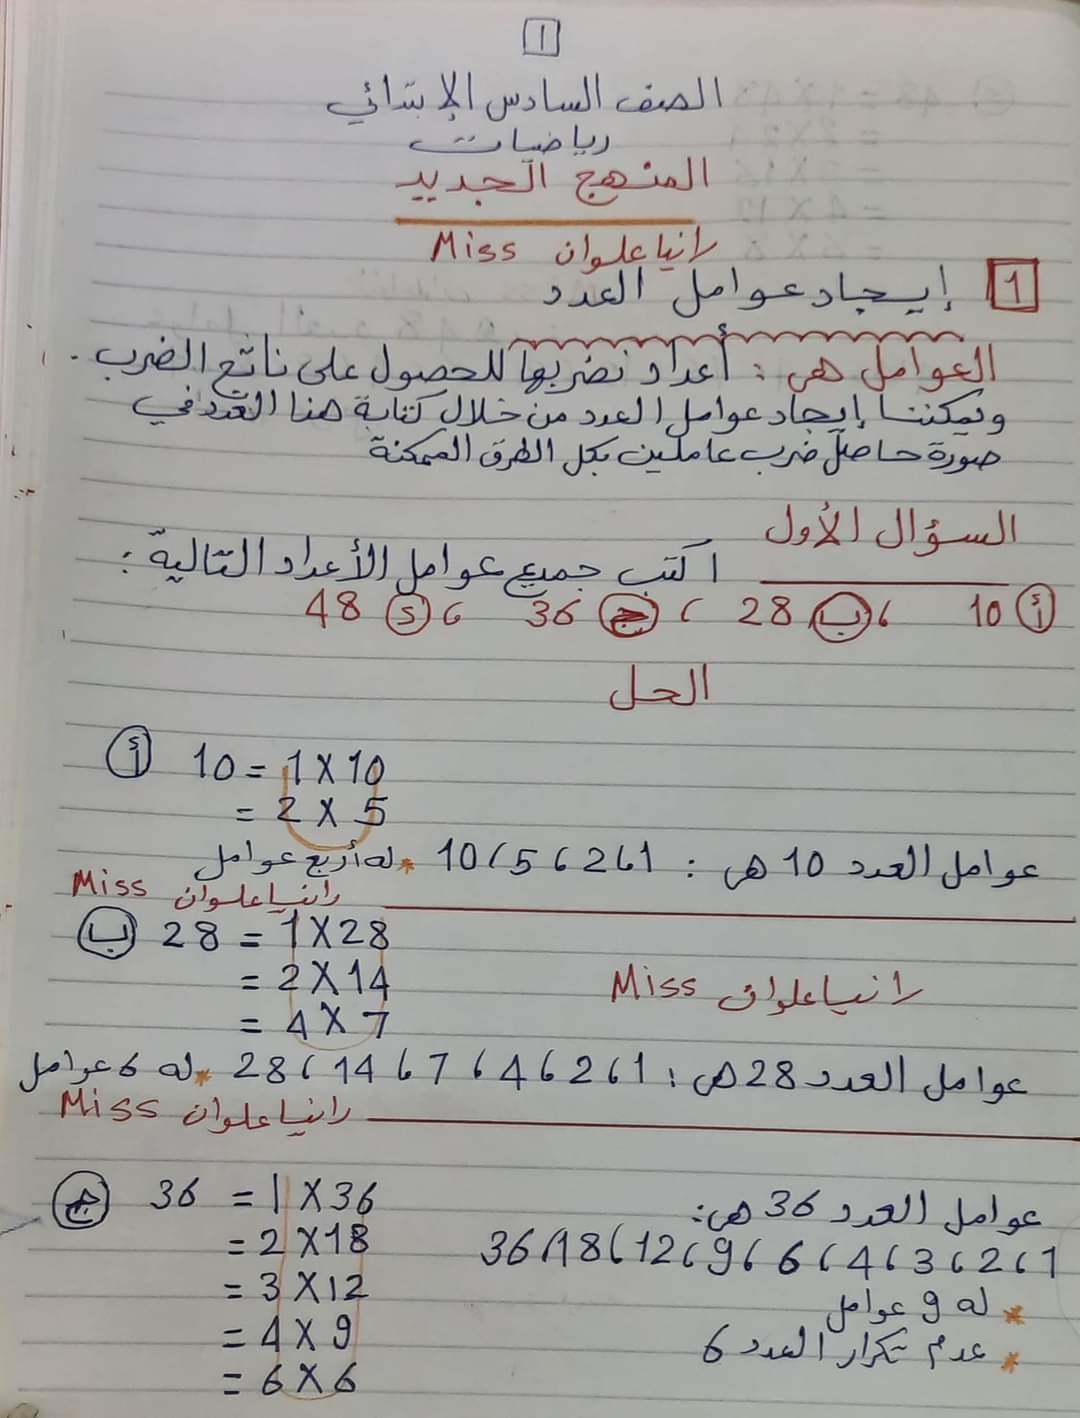 1
الصف السادس الإبتدائي
رياضيات
المنهج الجديد
Miss رانيا علوان
1 إيجاد عوامل العدد
العوامل هي : أعداد نضربها للحصول على ناتج الضرب .
ويمكننا إيجاد عوامل العدد من خلال كتابة هذا العدد في
صورة حاصل ضرب عاملين بكل الطرق الممكنة
السؤال الأول
اكتب جميع عوامل الأعداد التالية :
أ 10 ، ب 28 ، ج 36 ، د 48
الحل
أ 10 = 1 X 10
= 2 X 5
عوامل العدد 10 هي : 1 ، 2 ، 5 ، 10 * له أربع عوامل
Miss رانيا علوان
ب 28 = 1 X 28
= 2 X 14
Miss رانيا علوان
= 4 X 7
عوامل العدد 28 هي : 1 ، 2 ، 4 ، 7 ، 14 ، 28 * له 6 عوامل
Miss رانيا علوان
ج 36 = 1 X 36
= 2 X 18
= 3 X 12
= 4 X 9
= 6 X 6
عوامل العدد 36 هي :
1 ، 2 ، 3 ، 4 ، 6 ، 9 ، 12 ، 18 ، 36
* له 9 عوامل
* عدم تكرار العدد 6